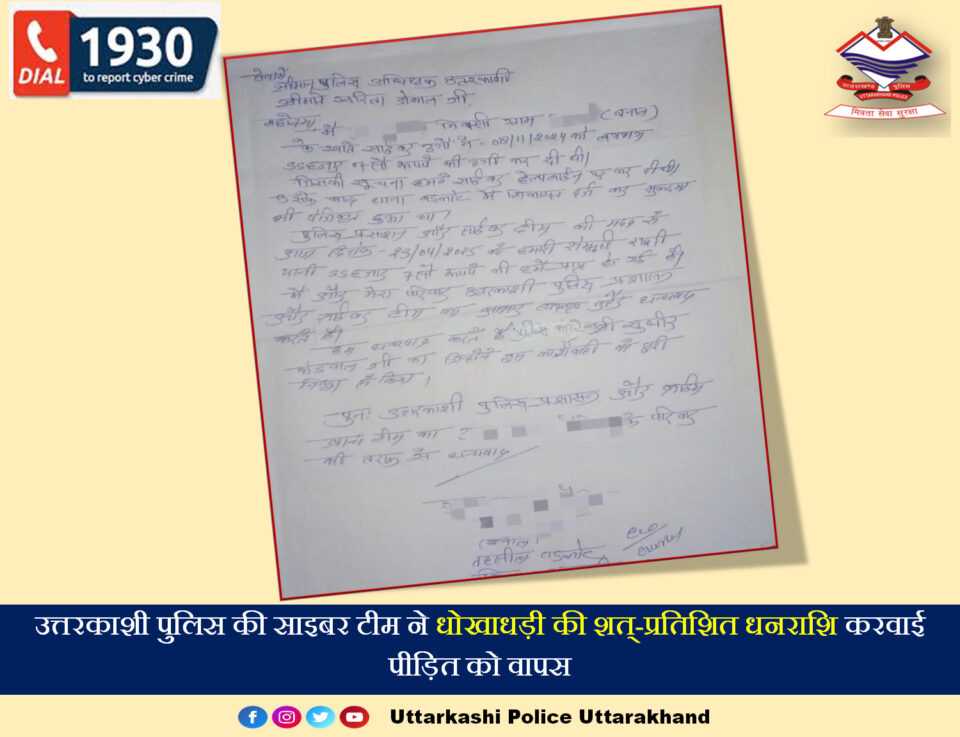 DIAL
1930
to report cyber crime
उत्तराखण्ड पुलिस
UTTARAKHAND POLICE
मित्रता सेवा सुरक्षा
सेवामें
श्रीमान पुलिस अधिक्षक उत्तरकाशी
श्रीमति सरिता डोबाल जी
महोदया, मै निवासी ग्राम (बनाल)
के खाते साईबर ठगों ने - 08/11/2024 को लगभग
7 सौ रूपये की ठगी कर दी थी।
जिसकी सूचना हमने साईबर हेल्पलाईन पर कर दी थी।
उसके बाद थाना बडकोट में शिकायत दर्ज कर मुकदमा
भी पंजिकृत हुआ था।
पुलिस प्रशासन और साईबर टीम की मदद से
आज दिनांक - 23/04/2025 को हमारी सम्पूर्ण राशी
यानी 7 सौ रूपये की हमें प्राप्त हो गई है।
मैं और मेरा परिवार उत्तरकाशी पुलिस प्रशासन
और साईबर टीम का आभार व्यक्त और धन्यवाद
करते हैं।
हम धन्यवाद करते हैं पुलिस सुधीर
कंडवाल जी का जिन्होंने इस कार्यवाही को पूरी
निष्ठा से किया।
पुनः उत्तरकाशी पुलिस प्रशासन और
टीम का के परिवार
की तरफ से धन्यवाद
(बनाल)
तहसील बडकोट
उत्तरकाशी पुलिस की साइबर टीम ने धोखाधड़ी की शत्-प्रतिशित धनराशि करवाई
पीड़ित को वापस
Uttarkashi Police Uttarakhand